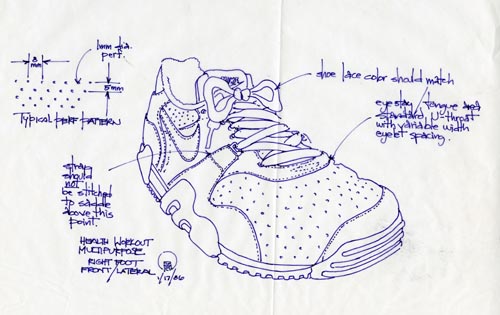 1mm dia.
perf.
8
mm
5mm
TYPICAL PERF PATTERN
shoe lace color should match
eye stay / tongue area
standard U-throat
with variable width
eyelet spacing
strap
should
not
be stitched
to saddle
above this
point.
HEALTH WORKOUT
MULTIPURPOSE
RIGHT FOOT
FRONT/LATERAL
/17/86